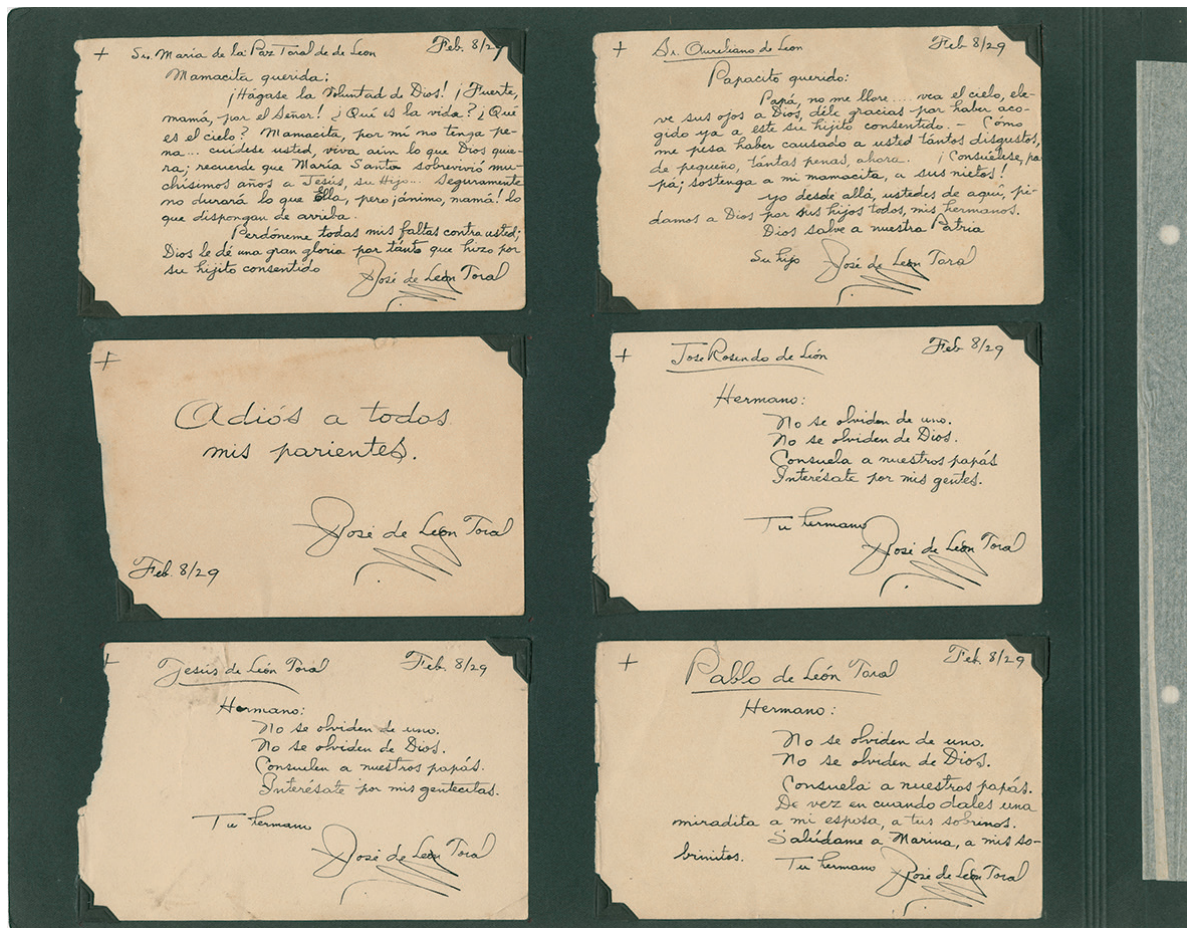 + Sra. María de la Paz Toral de de León Feb. 8/29
Mamacita querida:
¡Hágase la Voluntad de Dios! ¡Fuerte,
mamá, por el Señor! ¿Qué es la vida? ¿Qué
es el cielo? Mamacita, por mí no tenga pe-
na... cuídese usted, viva aún lo que Dios quie-
ra; recuerde que María Santa sobrevivió mu-
chísimos años a Jesús, su Hijo... Seguramente
no durará lo que Ella, pero ¡ánimo, mamá! lo
que dispongan de arriba.
Perdóneme todas mis faltas contra usted;
Dios le dé una gran gloria por tánto que hizo por
su hijito consentido
José de León Toral
+ Sr. Aureliano de León Feb 8/29
Papacito querido:
Papá, no me llore.... vea el cielo, ele-
ve sus ojos a Dios, déle gracias por haber aco-
gido ya a este su hijito consentido. - Cómo
me pesa haber causado a usted tántos disgustos,
de pequeño, tántas penas, ahora. ¡Consuélese, pa-
pá; sostenga a mi mamacita, a sus nietos!
yo desde allá, ustedes de aquí, pi-
damos a Dios por sus hijos todos, mis hermanos.
Dios salve a nuestra Patria
Su hijo José de León Toral
+
Adiós a todos
mis parientes.
José de León Toral
Feb. 8/29
+ José Rosendo de León Feb 8/29
Hermano:
No se olviden de uno.
No se olviden de Dios.
Consuela a nuestros papás
Interésate por mis gentes.
Tu hermano
José de León Toral
+ Jesús de León Toral Feb. 8/29
Hermano:
No se olviden de uno.
No se olviden de Dios.
Consuelen a nuestros papás.
Interésate por mis gentecitas.
Tu hermano
José de León Toral
+ Pablo de León Toral Feb. 8/29
Hermano:
No se olviden de uno.
No se olviden de Dios.
Consuela a nuestros papás.
De vez en cuando dales una
miradita a mi esposa, a tus sobrinos.
Salúdame a Marina, a mis so-
brinitos.
Tu hermano José de León Toral